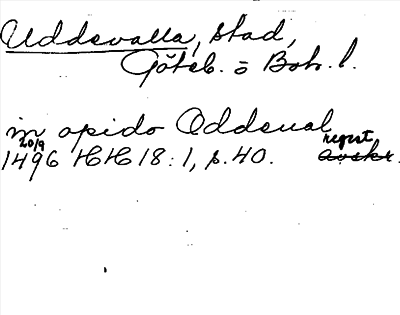 Uddevalla, stad,
Göteb. o Boh. l.
in opido Oddeual
20/9 regest
1496 HH 18:1, p. 40. avskr.